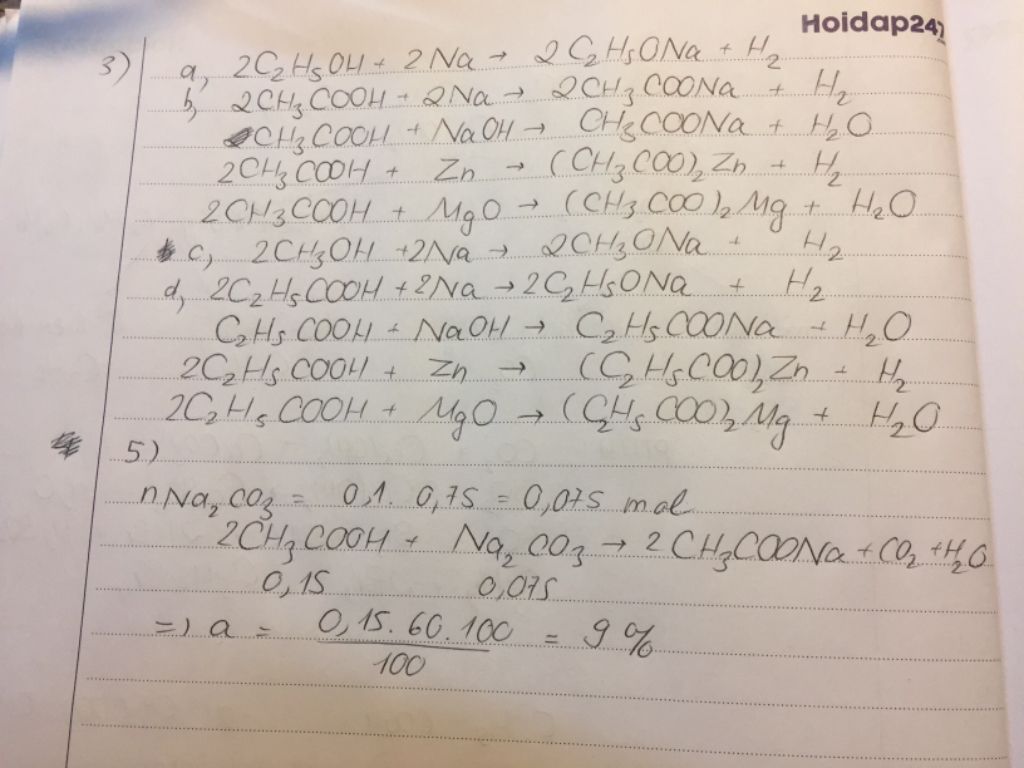 Hoidap247
3) a, 2C₂H₅OH + 2Na → 2C₂H₅ONa + H₂
b, 2CH₃COOH + 2Na → 2CH₃COONa + H₂
CH₃COOH + NaOH → CH₃COONa + H₂O
2CH₃COOH + Zn → (CH₃COO)₂Zn + H₂
2CH₃COOH + MgO → (CH₃COO)₂Mg + H₂O
c, 2CH₃OH +2Na → 2CH₃ONa + H₂
d, 2C₂H₅COOH +2Na → 2C₂H₅ONa + H₂
C₂H₅COOH + NaOH → C₂H₅COONa + H₂O
2C₂H₅COOH + Zn → (C₂H₅COO)₂Zn + H₂
2C₂H₅COOH + MgO → (C₂H₅COO)₂Mg + H₂O
5)
nNa₂CO₃ = 0,1. 0,75 = 0,075 mol
2CH₃COOH + Na₂CO₃ → 2CH₃COONa + CO₂ + H₂O
0,15 0,075
=> a = 0,15.60.100 / 100 = 9%